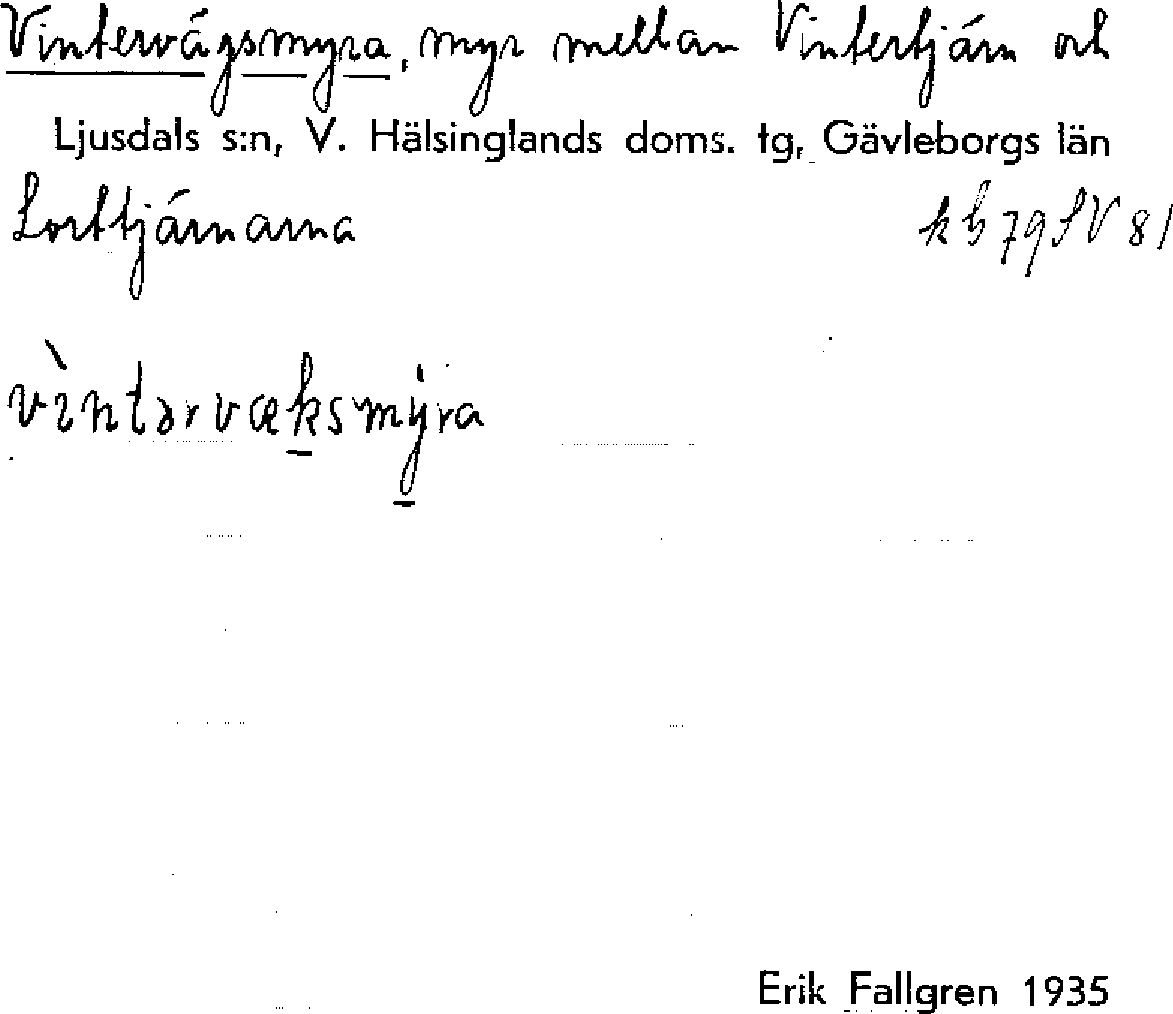 Vintervägsmyra, myr mellan Vintertjärn och
Ljusdals s:n, V. Hälsinglands doms. tg, Gävleborgs län
Lorttjärnarna kb 79 SV 81
vìntərvæksmýra
Erik Fallgren 1935